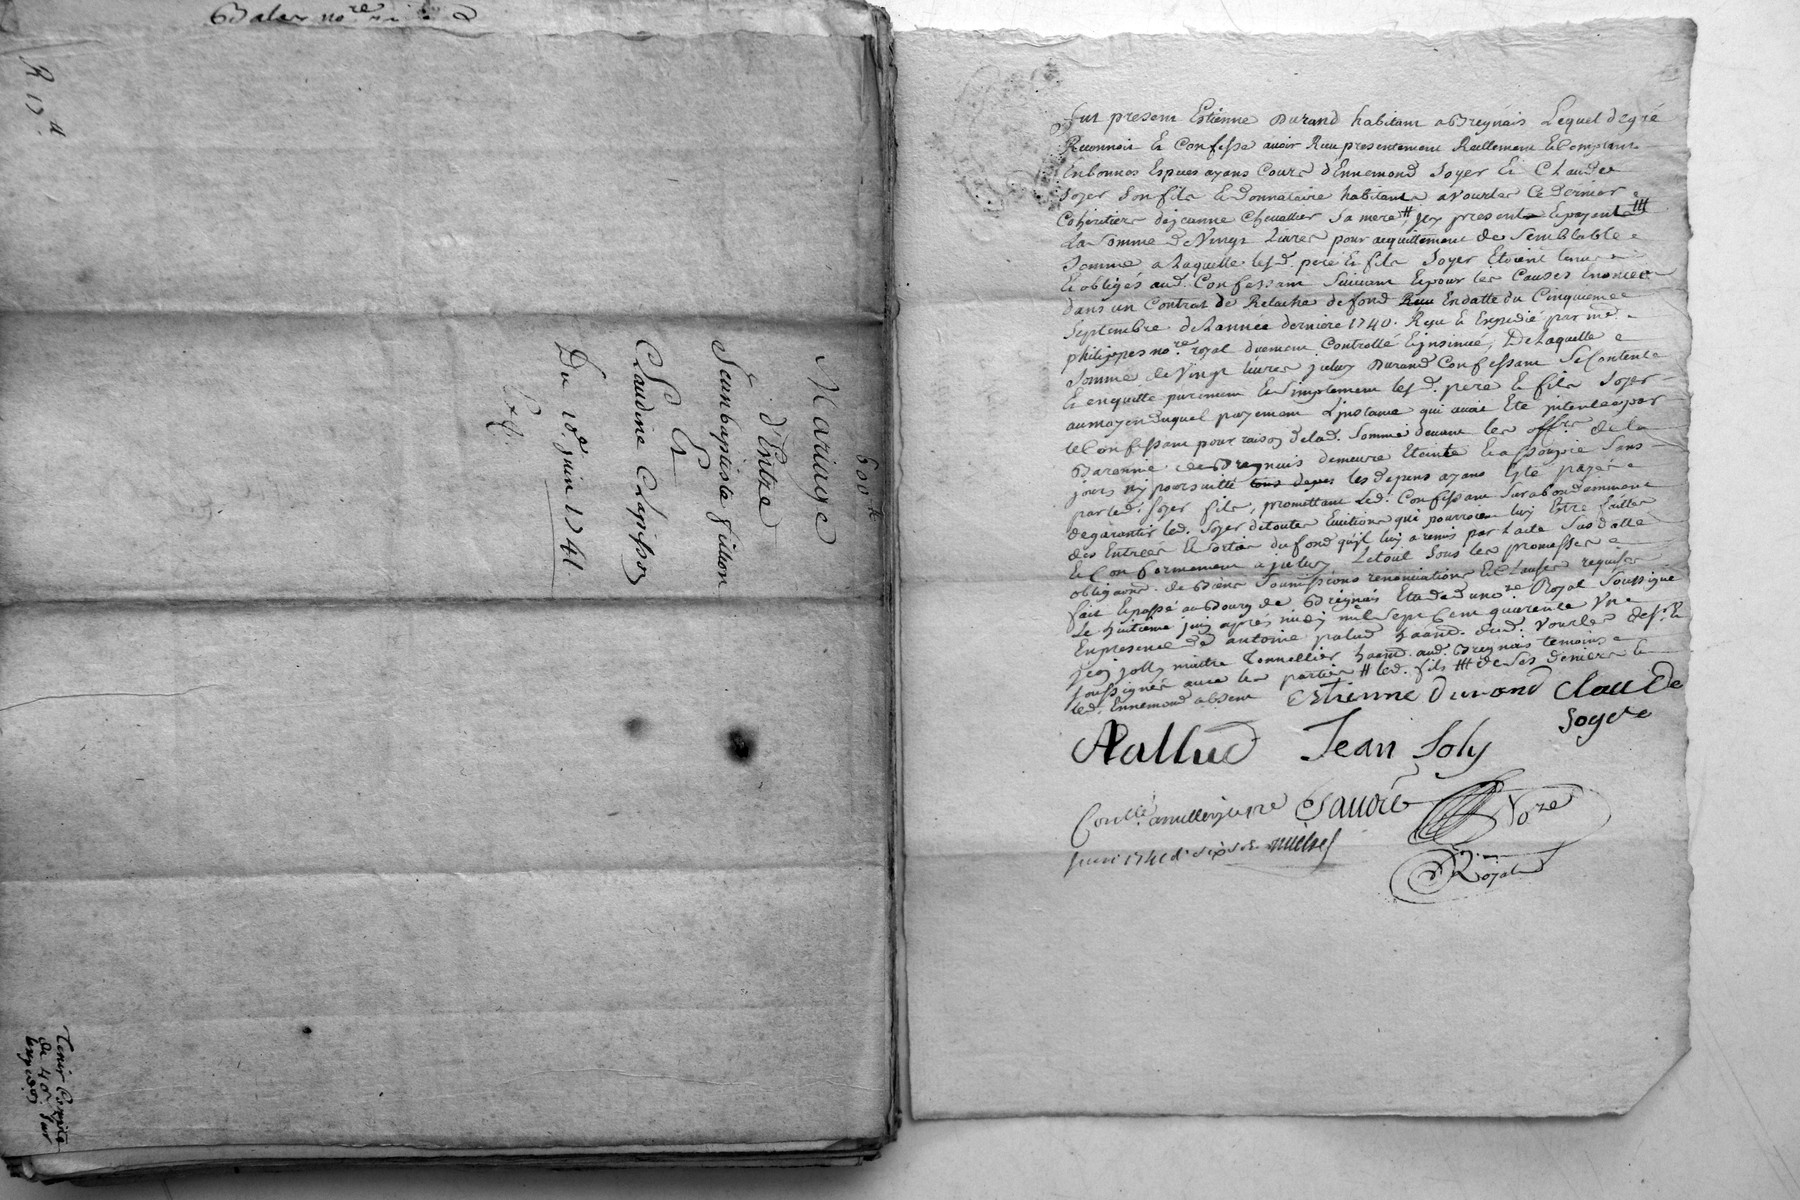 R 17ᵗᵗ
600ᵗᵗ
Mariage
d'Entre
Jeanbaptiste fillion
Et
Claudine Chapisson
Du 18ᵉ juin 1741.
Tenir Compte
de 40ˢ sur
Fut present Estienne Durand habitant a Breignais Lequel de gré
Reconnoit Et Confesse avoir Reçu presentement Reellement Et Comptant
En bonnes Especes ayans Cours d'Ennemond Soyer Et Claude
Soyer Son fils Et donnataire habitants a Vourles Ce dernier
Cohéritier de jeanne Chevallier Sa mere # jcy present Et payent #
La Somme de Vingt Livres pour acquittement de Semblable
Somme a Laquelle lesd. pere Et fils Soyer Etoient tenus
Et obligés aud. Confessant Suivant Et pour les Causes Enoncées
dans un Contrat de Relache de fond Reçu En datte du Cinquieme
Septembre de L'année derniere 1740. Reçu Et Expedié par me.
philippes noʳᵉ royal duement Controllé Et jnsinué, De Laquelle
Somme de Vingt Livres jceluy Durand Confessant Se Contente
Et en quitte purement Et Simplement lesd. pere Et fils Soyer
au moyen duquel payement L'jnstance qui avoit Eté jntentée par
le Confessant pour raison de lad. Somme devant les offʳˢ de la
Baronnie de Breignais demeure Eteinte Et assoupie Sans
jours ny poursuitte les depens ayans Eté payés
par led. Soyer fils, promettant Led. Confessant Surabondamment
de garantir led. Soyer de toutes Evictions qui pourroient luy Etre faittes
des Entrées Et Sorties du fond qu'jl luy a remis par L'acte Susdatté
Et Conformement a jceluy Le tout Sous les promesses
obligaons. de Biens Soumissions renonciations Et Clauses requises
fait Et passé au Bourg de Breignais Etude du noʳᵉ Royal Soussigné
Le huitieme juin apres midy mil Sept Cent quarente Un
En presence de antoine palud habnt. dud. Vourles Et de Sʳ
jean jolly maitre Tonnellier habnt. aud. Breignais temoins
Soussignés avec les parties # led. fils # de Ses deniers
led. Ennemond absent Estienne durand Claude
Soyere
APallud Jean Joly
Noʳᵉ
Royal